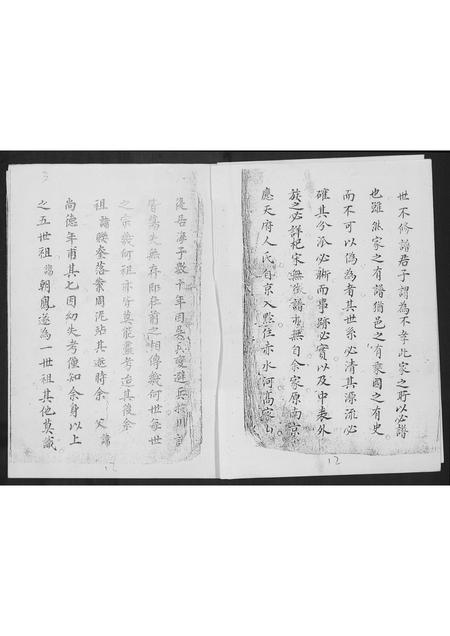 世不修譜君子謂為不孝此家之所以必譜
也雖然家之有譜猶邑之有乘國之有史
而不可以偽為者其世系必清其源流必
確其分派必晰而事跡必實以及中表外
族之必詳杞宋無徵譜亦無自余家原南京
應天府人氏自京入黔住赤水河高家山
後居海子數十年因吳兵變避兵
失無存即在前之相傳幾何世每世
之宗幾何祖亦皆莫能盡考迨其後余
祖諱聯奎落業周泥站其遷時余父諱
尚德年甫其七因幼失考僅知余身以上
之五世祖諱朝鳳遂為一世祖其他莫識
12